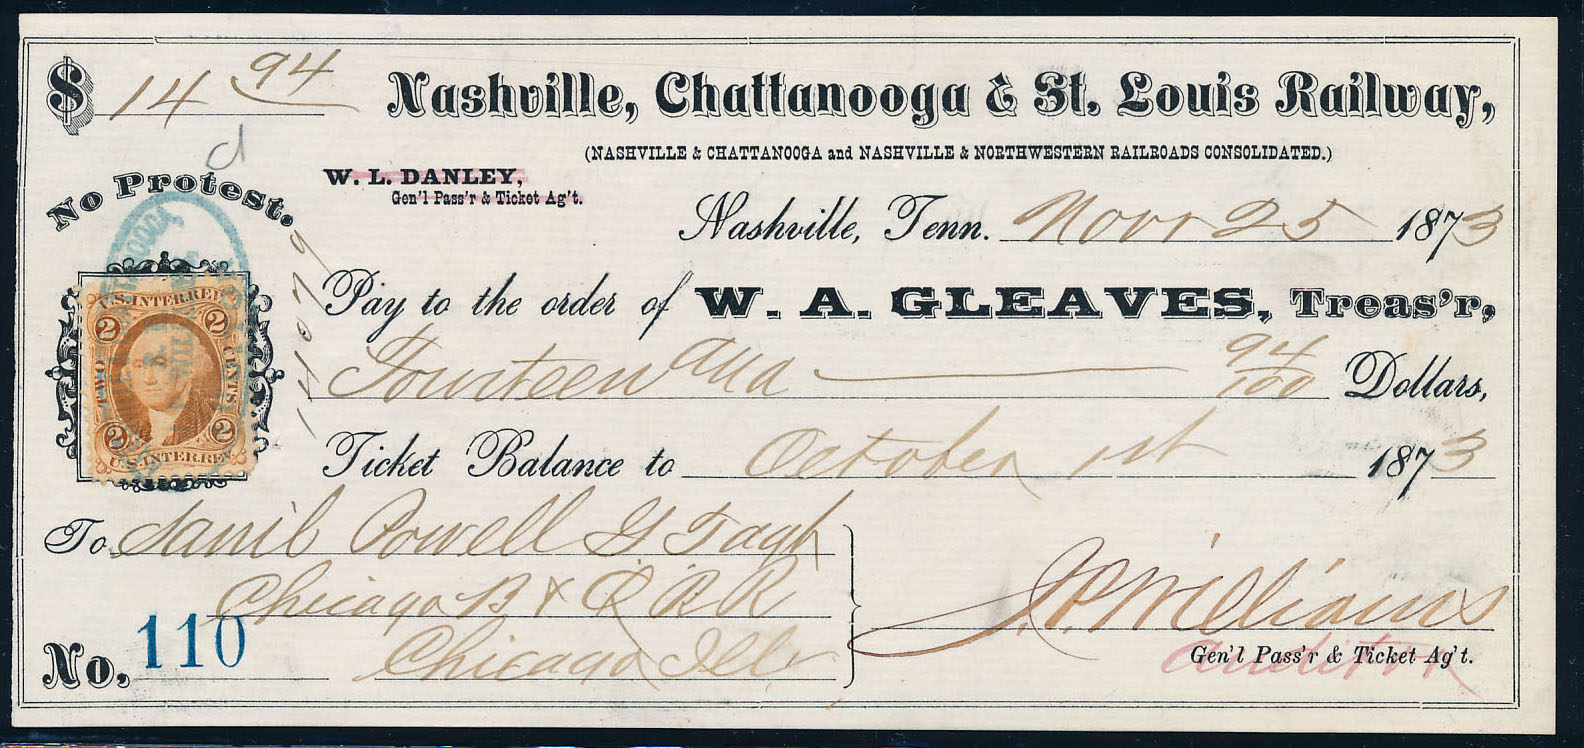 $ 14 94
Nashville, Chattanooga & St. Louis Railway,
(NASHVILLE & CHATTANOOGA and NASHVILLE & NORTHWESTERN RAILROADS CONSOLIDATED.)
No Protest.
W. L. DANLEY,
Gen'l Pass'r & Ticket Ag't.
Nashville, Tenn. Novr 25 1873
Pay to the order of W. A. GLEAVES, Treas'r,
Fourteen and 94/100 Dollars,
Ticket Balance to October 1st 1873
U.S. INTER. REV.
2 2
TWO CENTS
2 2
U.S. INTER. REV.
To Saml Powell G
Chicago B & Q R R
Chicago Ills
No. 110
J. P. Williams
Gen'l Pass'r & Ticket Ag't.